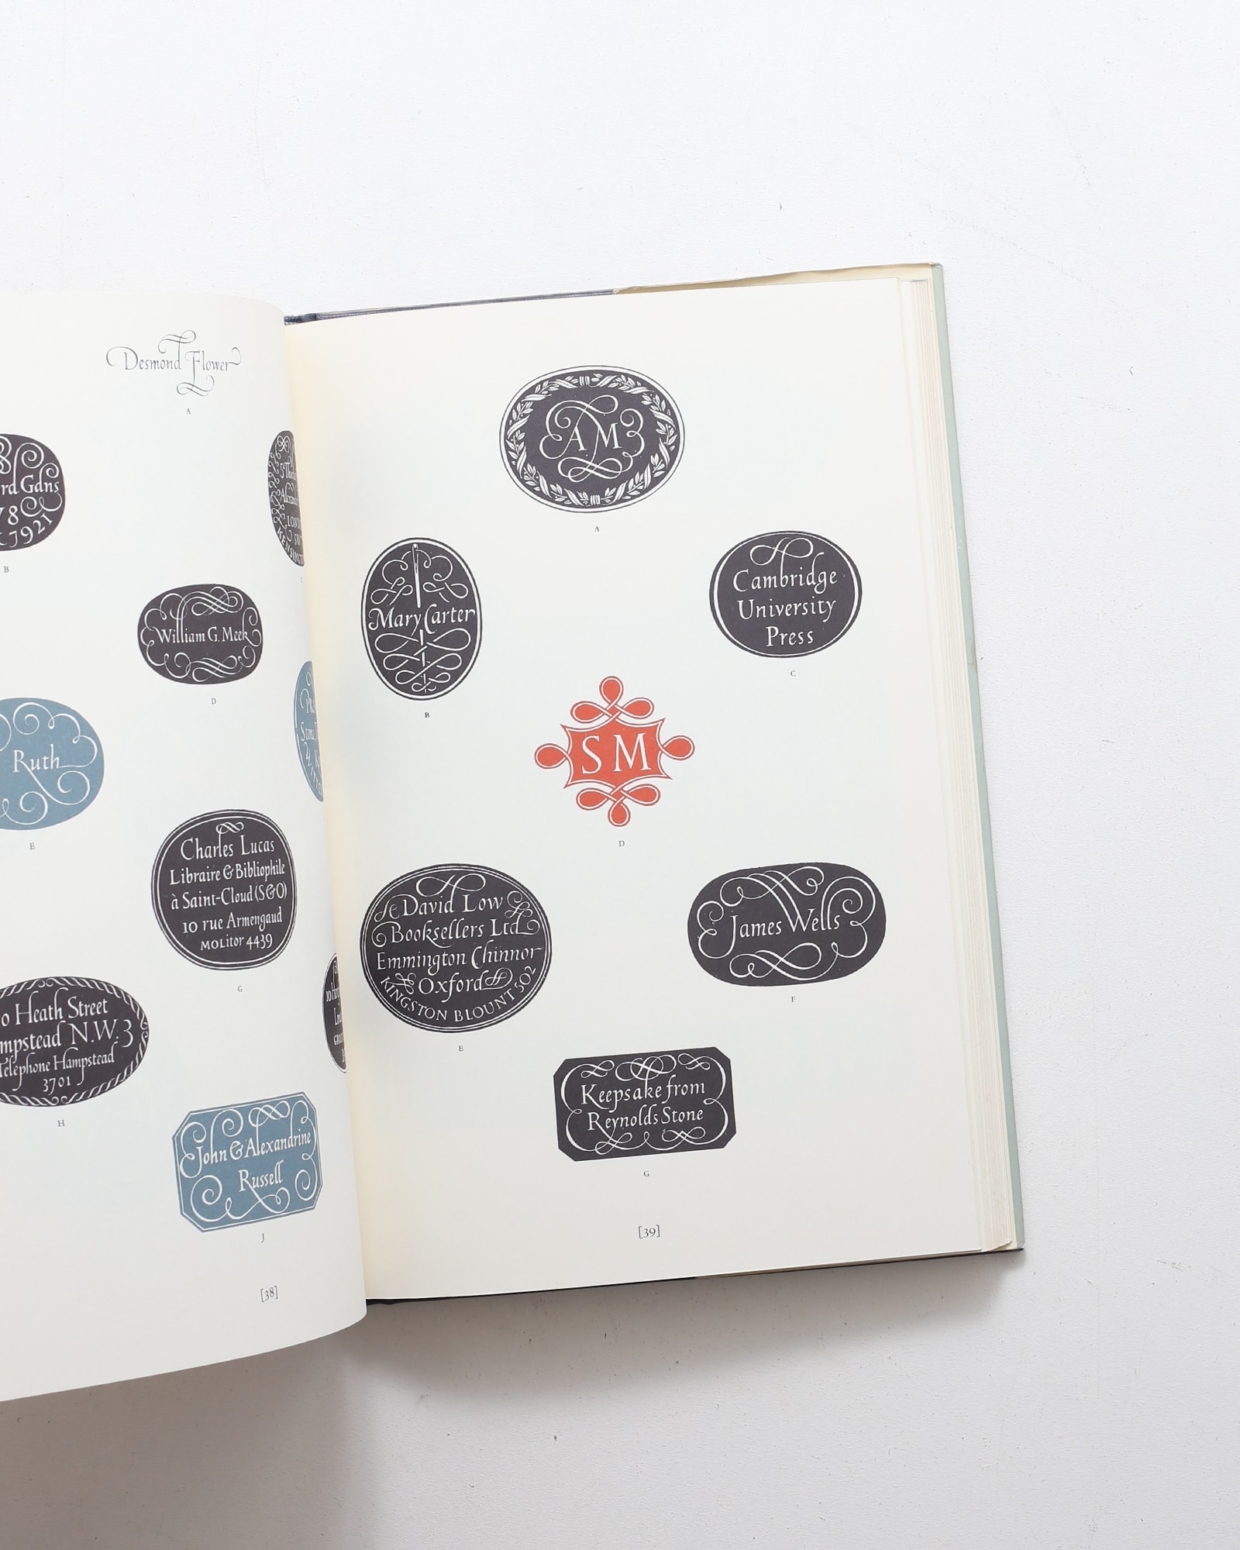 Desmond Flower
A
rd Gdns
78
7921
B
William G. Meek
D
Ruth
E
Charles Lucas
Libraire & Bibliophile
à Saint-Cloud (S&O)
10 rue Armengaud
MOLitor 4439
G
Heath Street
N.W.3
Telephone Hampstead
3701
H
John & Alexandrine
Russell
J
[38]
AM
A
Mary Carter
B
Cambridge
University
Press
C
SM
D
David Low
Booksellers Ltd
Emmington Chinnor
Oxford
KINGSTON BLOUNT 502
E
James Wells
F
Keepsake from
Reynolds Stone
G
[39]